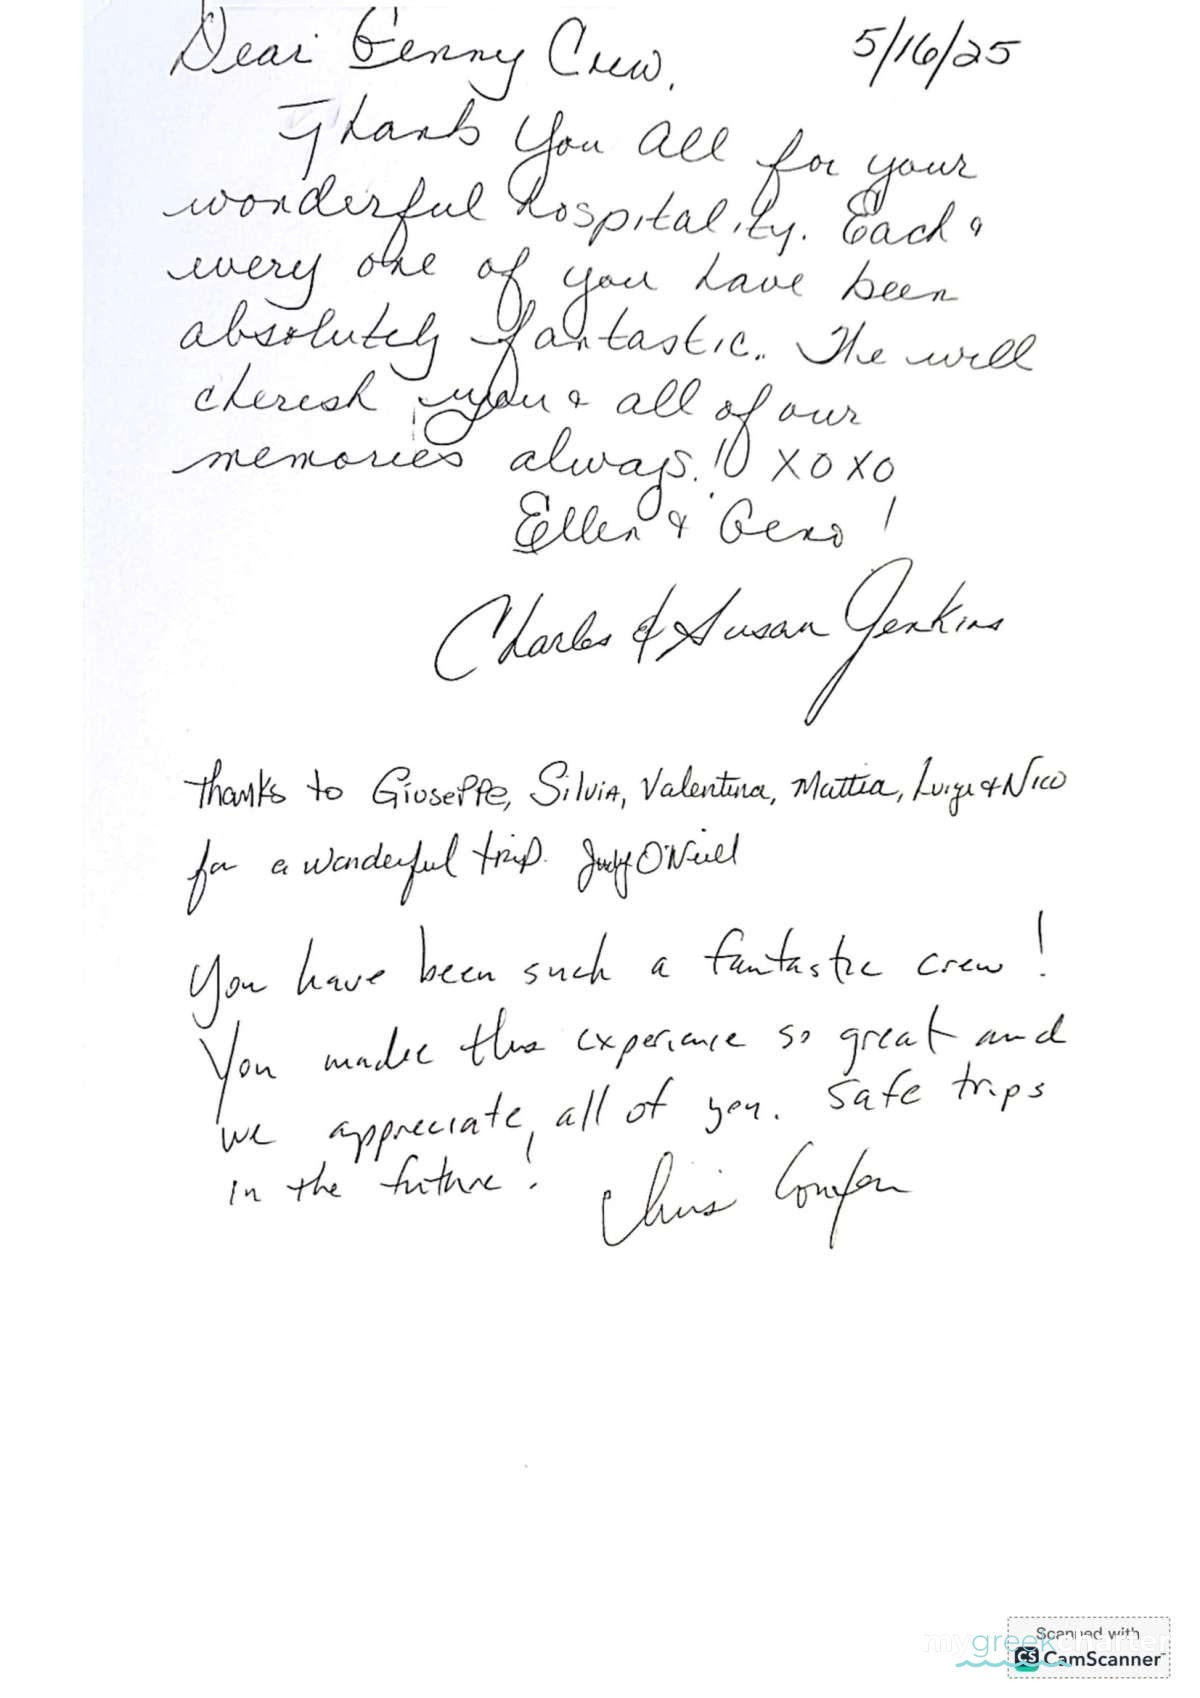 Dear Genny Crew, 5/16/25
Thank You all for your
wonderful hospitality. Each &
every one of you have been
absolutely fantastic. The will
cherish you & all of our
memories always!! XOXO
Ellen & Geno!
Charles & Susan Jenkins
Thanks to Giuseppe, Silvia, Valentina, Mattia, Luigi & Nico
for a wonderful trip. Judy O'Neill
You have been such a fantastic crew!
You made this experience so great and
we appreciate all of you. Safe trips
in the future! Chris
Scanned with
mygreekcharter
CS CamScanner